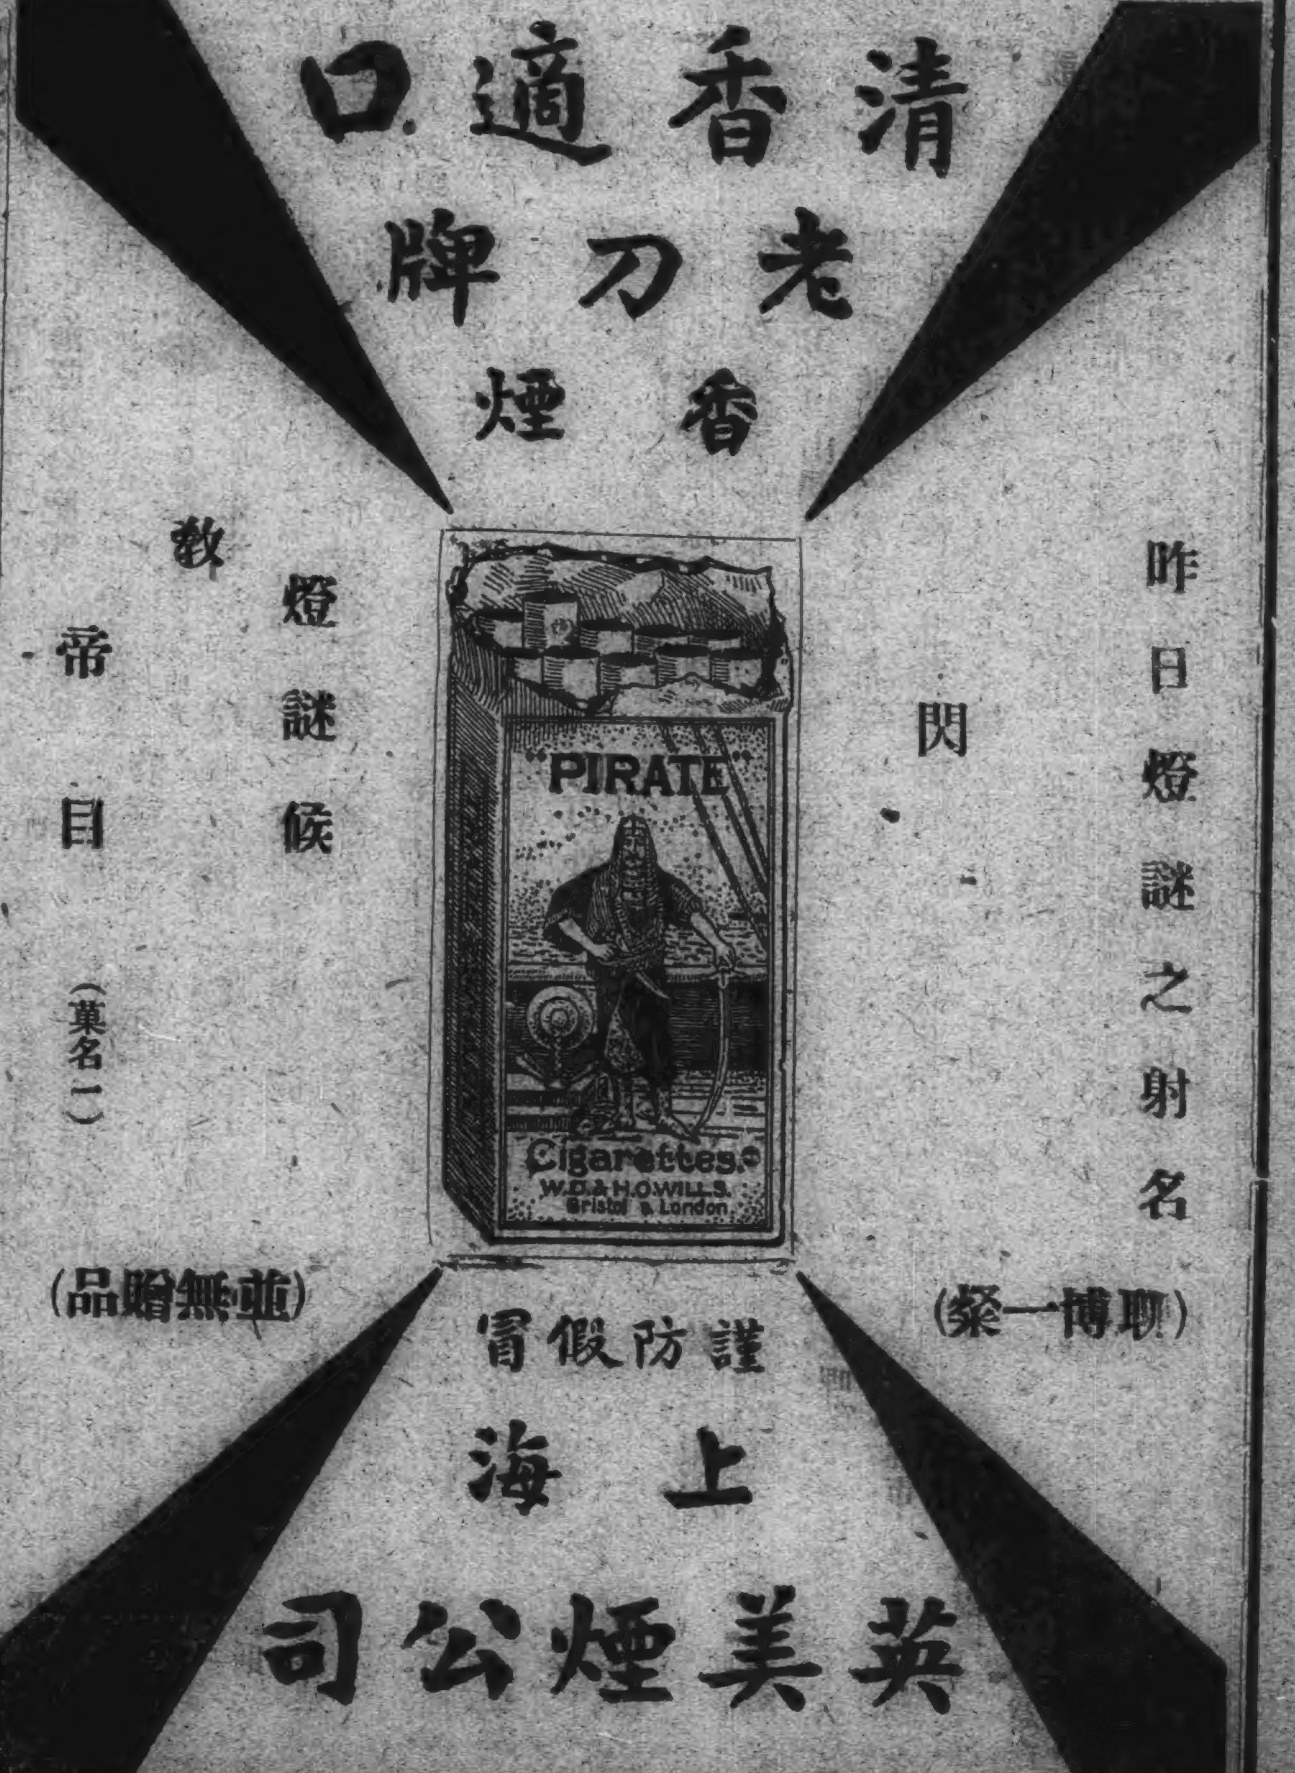 清香適口
老刀牌
香煙
昨日燈謎之射名
閃
(聊博一粲)
"PIRATE"
Cigarettes.
W.D.& H.O.WILLS.
Bristol & London.
燈謎候教
帝目(菓名一)
(並無贈品)
謹防假冒
上海
英美煙公司